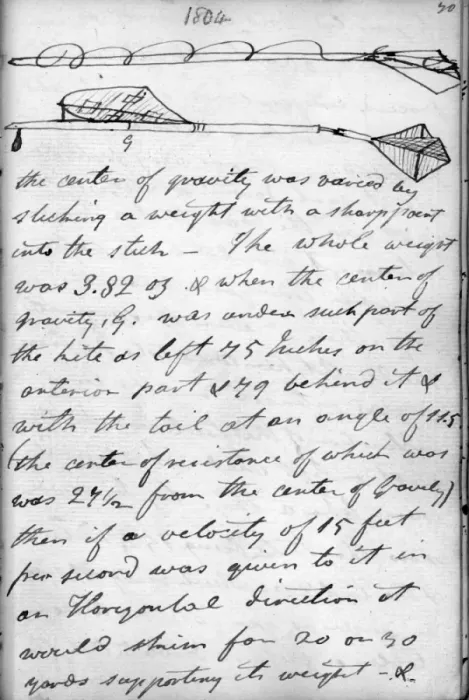 1804
30
75
79
G
the center of gravity was varied by
sticking a weight with a sharp point
into the stick — The whole weight
was 3.82 oz & when the center of
gravity, G. was under such part of
the kite as left 75 Inches on the
anterior part & 79 behind it &
with the tail at an angle of 11.5
(the center of resistance of which was
was 27½ from the center of Gravity)
then if a velocity of 15 feet
per second was given to it in
an Horizontal direction it
would skim for 20 or 30
yards supporting its weight — &